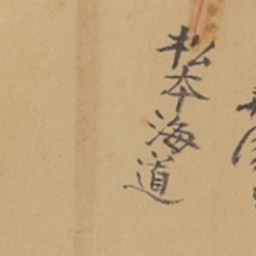 松本海道